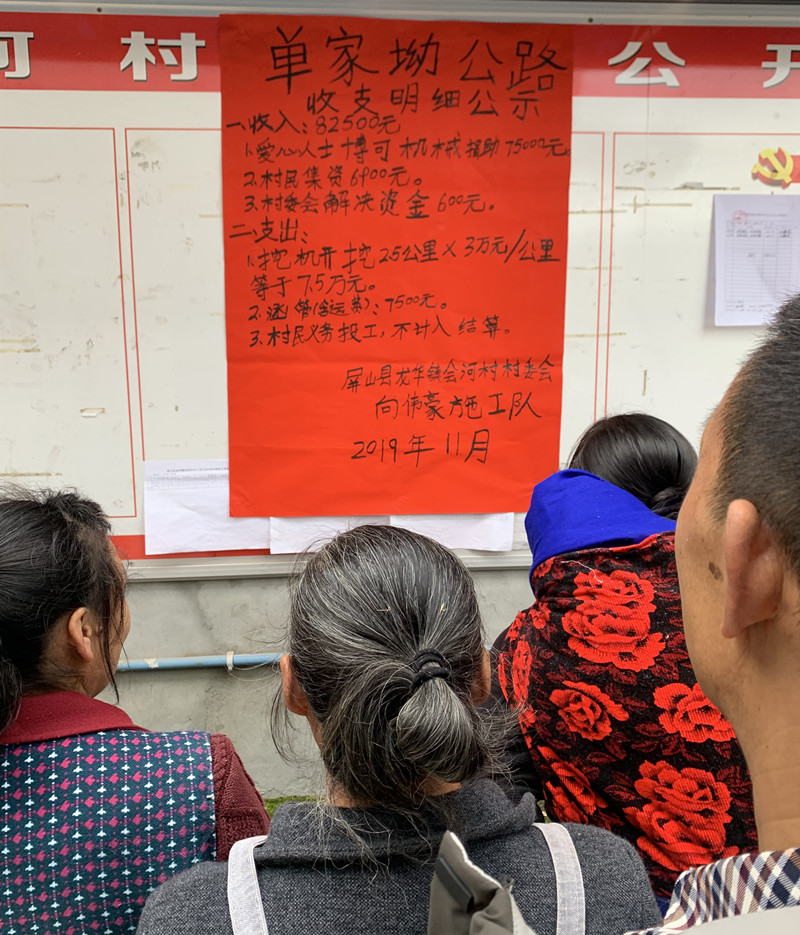 河村
公开
单家坳公路
收支明细公示
一、收入：82500元
1.爱心人士博可机械捐助75000元。
2.村民集资6900元。
3.村委会解决资金600元。
二、支出：
1.挖机开挖2.5公里×3万元/公里
等于7.5万元。
2.涵管(含运费)：7500元。
3.村民义务投工，不计入结算。
屏山县龙华镇会河村村委会
向伟豪施工队
2019年11月